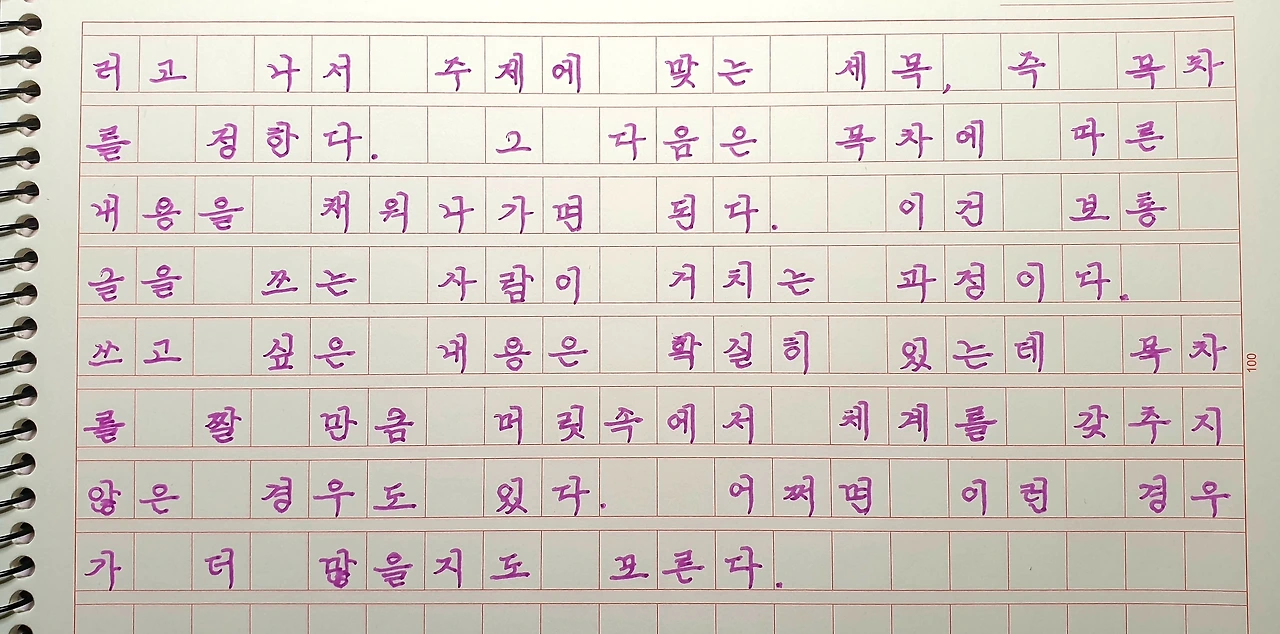 러고 나서 주제에 맞는 세목, 즉 목차
를 정한다. 그 다음은 목차에 따른
내용을 채워나가면 된다. 이건 보통
글을 쓰는 사람이 거치는 과정이다.
쓰고 싶은 내용은 확실히 있는데 목차
를 짤 만큼 머릿속에서 체계를 갖추지
않은 경우도 있다. 어쩌면 이런 경우
가 더 많을지도 모른다.
100